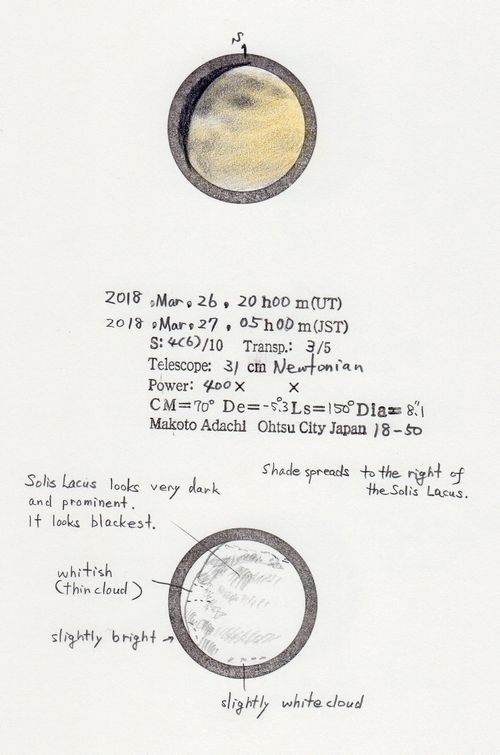 S
2018 . Mar. 26 , 20 h00 m(UT)
2018 . Mar. 27 , 05 h00 m(JST)
S: 4(6)/10 Transp.: 3/5
Telescope: 31 cm Newtonian
Power: 400× ×
CM=70° De=-5.°3 Ls=150° Dia=8."1
Makoto Adachi Ohtsu City Japan 18-50
Solis Lacus looks very dark
and prominent.
It looks blackest.
Shade spreads to the right of
the Solis Lacus.
whitish
(thin cloud)
slightly bright
slightly white cloud